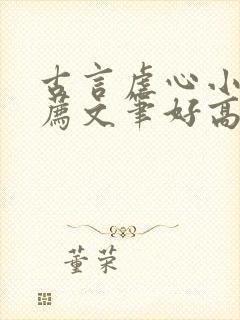 古言虐心小
荐文笔好高
董荣